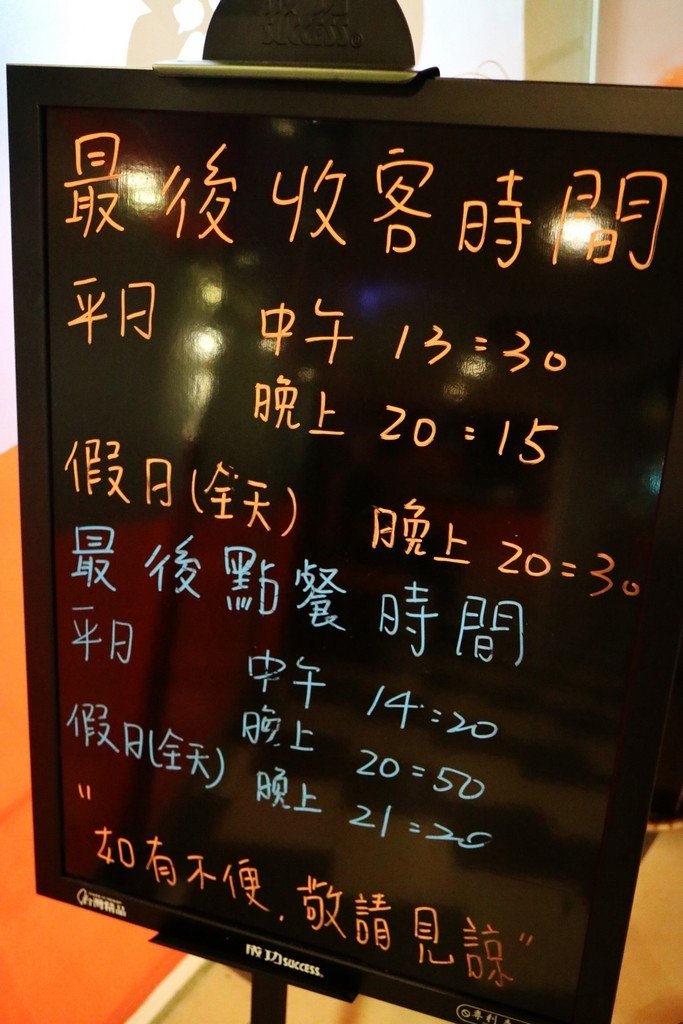 成功
SUCCESS
最後收客時間
平日 中午 13:30
晚上 20:15
假日(全天) 晚上 20:30
最後點餐時間
平日 中午 14:20
晚上 20:50
假日(全天) 晚上 21:20
"如有不便,敬請見諒"
台灣精品
成功 SUCCESS
專利